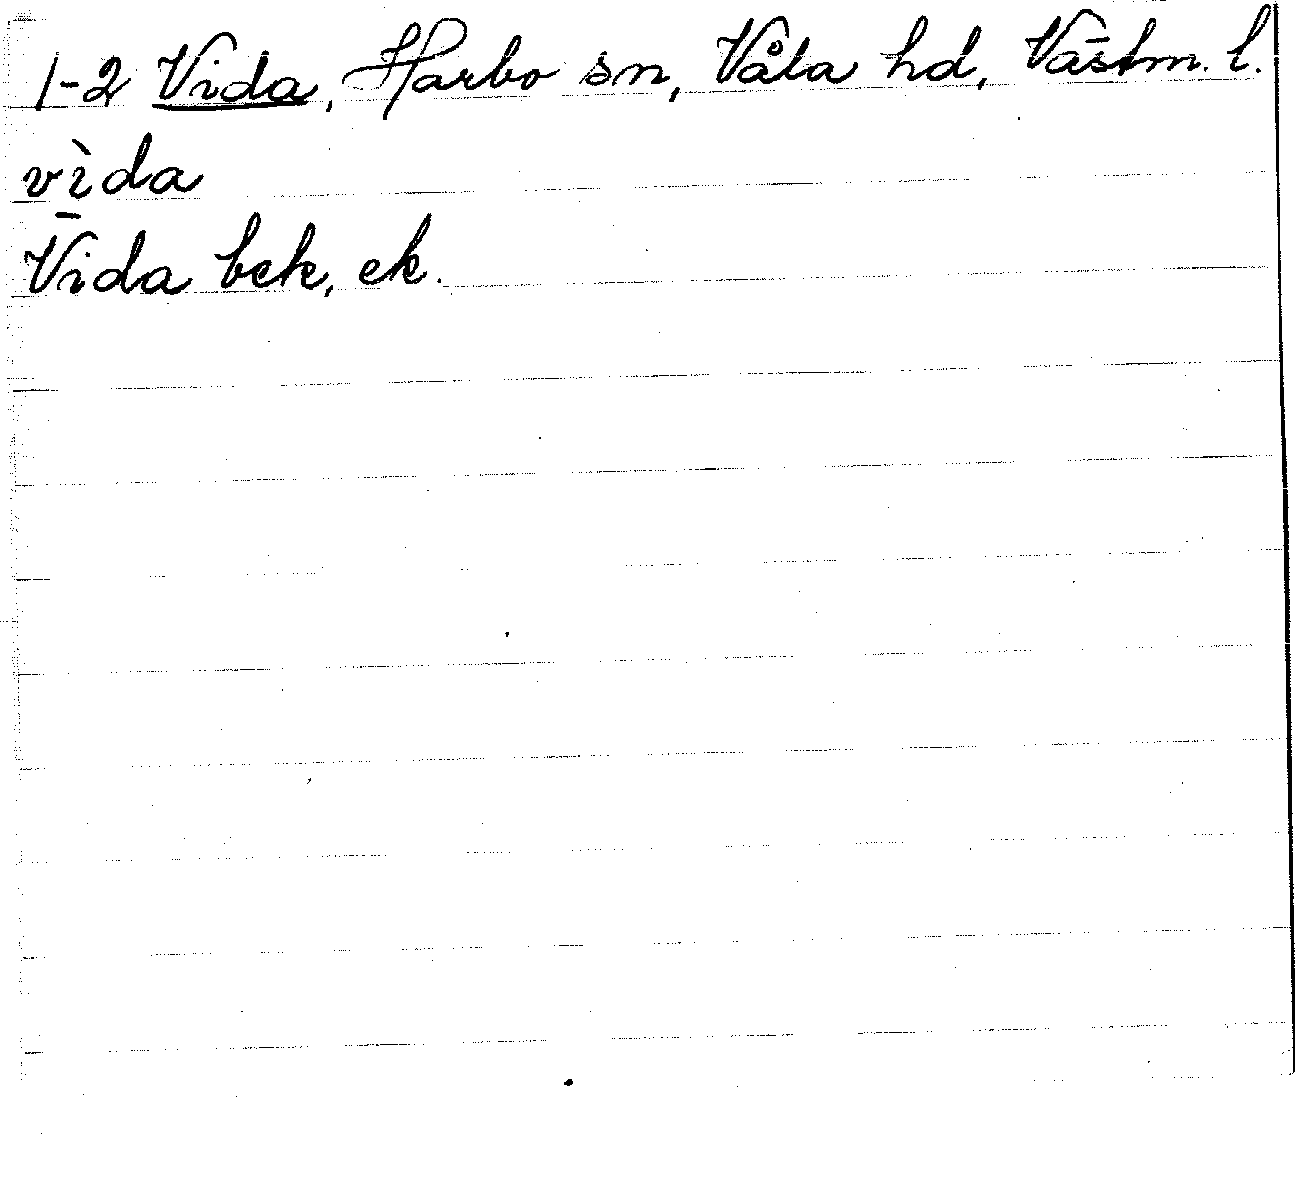 1-2 Vida, Harbo sn, Våla hd, Västm. l.
vìda
Vida bek, ek.